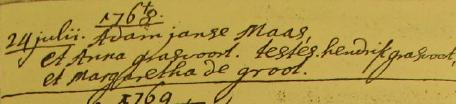 1768.
24 julii. Adam janse Maas,
et Anna grasvoort. testes. hendrik grasvoort,
et Margaretha de groot.
1769